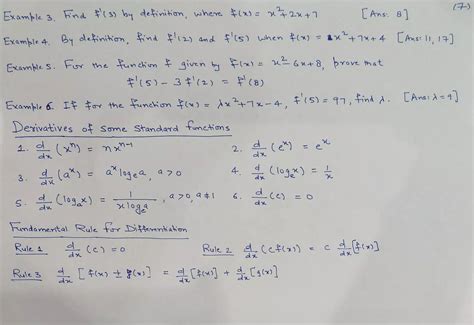 (7)
Example 3. Find f'(3) by definition, where f(x) = x²+2x+7 [Ans: 8]
Example 4. By definition, find f'(2) and f'(5) when f(x) = x²+7x+4 [Ans: 11, 17]
Example 5. For the function f given by f(x) = x²-6x+8, prove that
f'(5) - 3f'(2) = f'(8)
Example 6. If for the function f(x) = λx²+7x-4, f'(5) = 97, find λ. [Ans: λ=9]
Derivatives of some standard functions
1. d/dx (xⁿ) = nxⁿ⁻¹ 2. d/dx (eˣ) = eˣ
3. d/dx (aˣ) = aˣ logₑa, a>0 4. d/dx (logₑx) = 1/x
5. d/dx (logₐx) = 1/(x logₑa), a>0, a≠1 6. d/dx (c) = 0
Fundamental Rule for Differentiation
Rule 1 d/dx (c) = 0 Rule 2 d/dx (c f(x)) = c d/dx [f(x)]
Rule 3 d/dx [f(x) ± g(x)] = d/dx [f(x)] ± d/dx [g(x)]